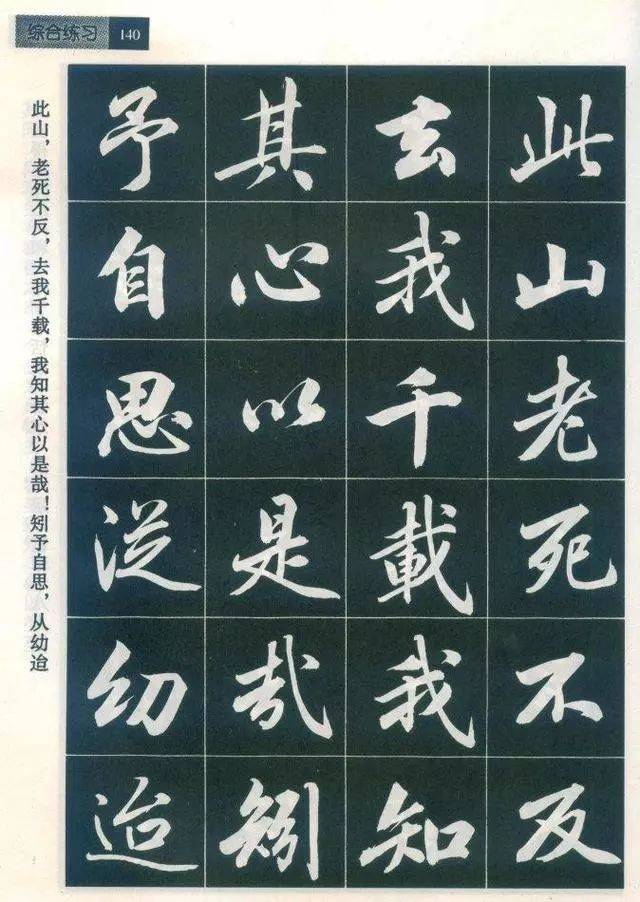 综合练习 140
此山老死不反
去我千載我知
其心以是哉矧
予自思從幼迨
此山，老死不反，去我千载，我知其心以是哉！矧予自思，从幼迨